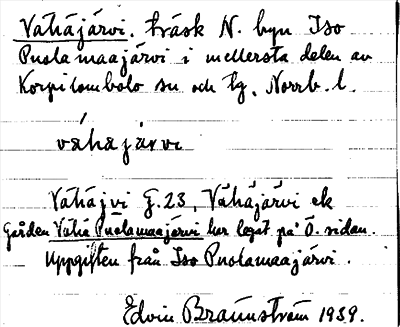 Vähäjärvi. träsk N. byn Iso
Puolamaajärvi i mellersta delen av
Korpilombolo sn och tg, Norrb. l.
vähäjärvi
Vähäjvi G.23, Vähäjärvi ek
Gården Vähä Puolamaajärvi har legat på Ö. sidan.
Uppgiften från Iso Puolamaajärvi.
Edvin Brännström 1939.